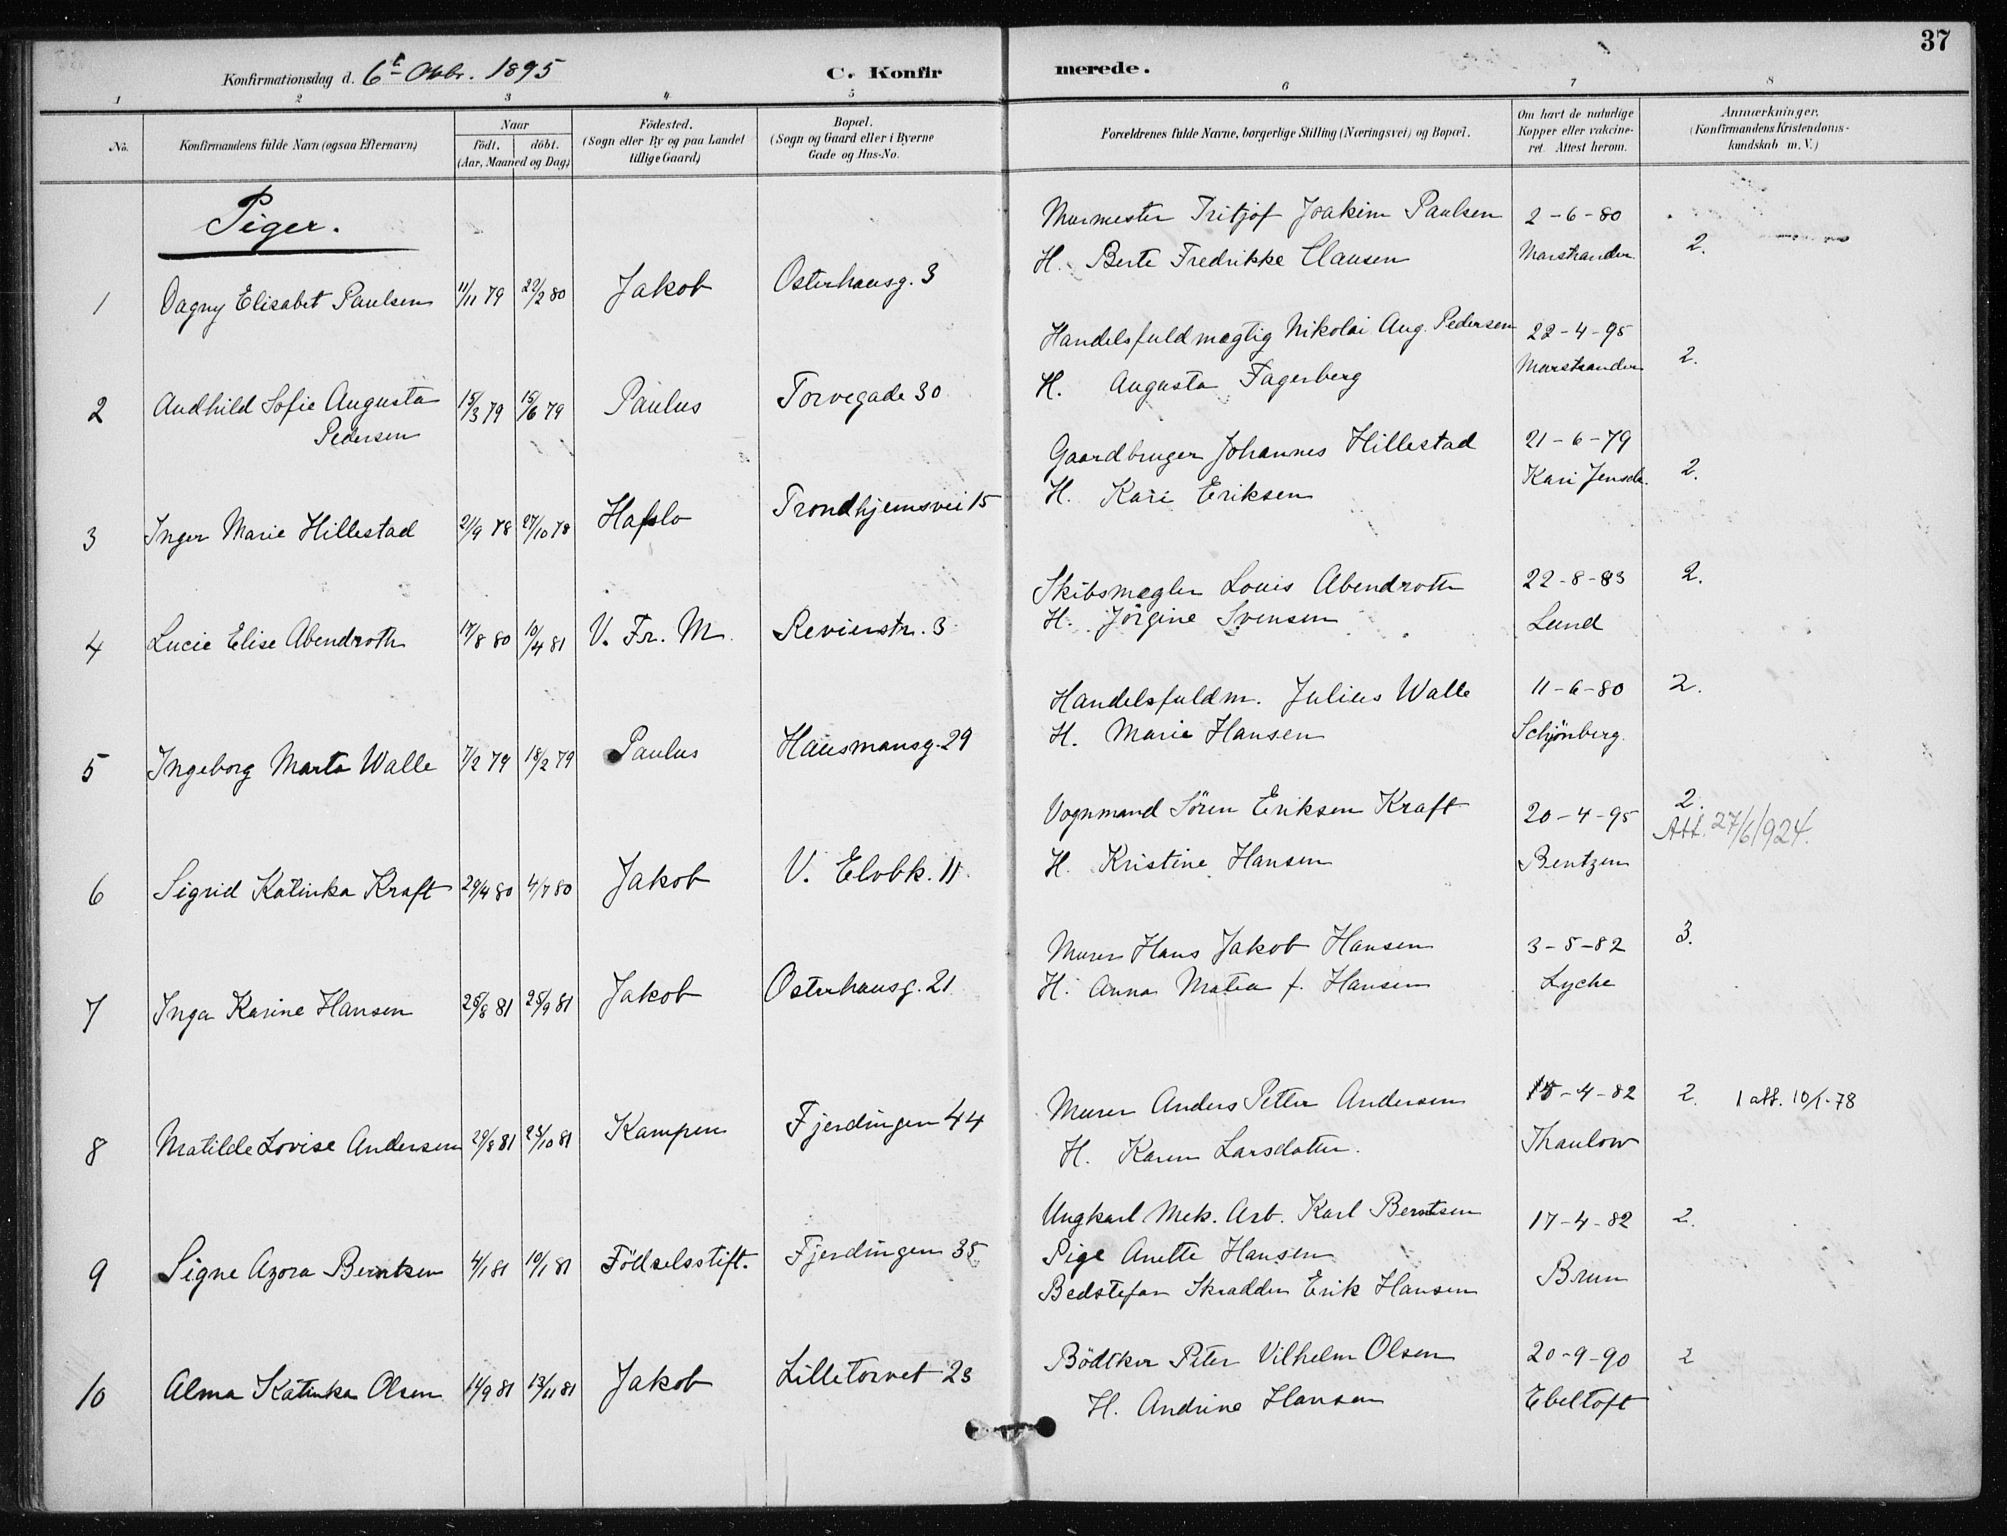 37
Konfirmationsdag d. 6te Oktbr. 1895
C. Konfirmerede.
1 2 3 4 5 6 7 8
No.
Konfirmandens fulde Navn (ogsaa Efternavn)
Naar
födt. döbt.
(Aar, Maaned og Dag)
Födested.
(Sogn eller By og paa Landet
tillige Gaard)
Bopæl.
(Sogn og Gaard eller i Byerne
Gade og Hus-No.
Forældrenes fulde Navne, borgerlige Stilling (Næringsvei) og Bopæl.
Om havt de naturlige
Kopper eller vakcine-
ret. Attest herom.
Anmærkninger.
(Konfirmandens Kristendoms-
kundskab m. V.)
Piger.
Murmester Fritjof Joakim Paulsen 2-6-80
H. Berte Fredrikke Clausen Marstrander 2.
1 Dagny Elisabet Paulsen 11/11 79 22/2 80 Jakob Osterhausg. 3
Handelsfuldmægtig Nikolai Aug. Pedersen 22-4-95
H. Augusta Fagerberg Marstrander 2.
2 Audhild Sofie Augusta 15/3 79 15/6 79 Paulus Torvegade 30
Pedersen
Gaardbruger Johannes Hillestad 21-6-79
H. Kari Eriksen Kari Jensdr. 2.
3 Inger Marie Hillestad 21/9 78 27/10 78 Hafslo Trondhjemsvei 15
Skibsmægler Louis Abendroth 22-8-83 2.
H. Jörgine Svensen Lund
4 Lucie Elise Abendroth 17/8 80 10/4 81 V. Fr. M. Revierstr. 3
Handelsfuldm. Julius Walle 11-6-80 2.
H. Marie Hansen Schjönberg
5 Ingeborg Marta Walle 7/2 79 18/2 79 Paulus Hausmansg. 29
Vognmand Sören Eriksen Kraft 20-4-95 2.
Att. 27/6/924.
H. Kristine Hansen Bentzen
6 Sigrid Katinka Kraft 29/4 80 4/7 80 Jakob V. Elvbk. 11
Murer Hans Jakob Hansen 3-5-82 3.
H. Anna Matea f. Hansen Lyche
7 Inga Karine Hansen 25/8 81 25/9 81 Jakob Osterhausg. 21
Murer Anders Petter Andersen 15-4-82 2. 1 att. 10/1-78
H. Karen Larsdatter. Thaulow
8 Matilde Lovise Andersen 29/8 81 23/10 81 Kampen Fjerdingen 44
Ungkarl Mek. Arb. Karl Berntsen 17-4-82 2.
Pige Anette Hansen
Bedstefar Skrædder Erik Hansen Brun
9 Signe Azora Berntsen 4/1 81 10/1 81 Födselsstift. Fjerdingen 35
Bödtker Peter Vilhelm Olsen 20-9-90 2
H. Andrine Hansen Ebeltoft
10 Alma Katinka Olsen 14/9 81 13/11 81 Jakob Lilletorvet 23